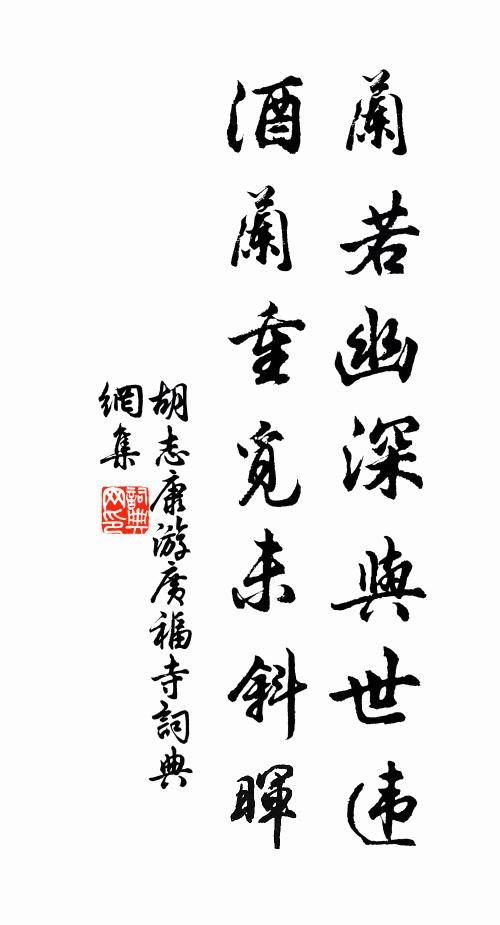 蘭若幽深與世违
酒蘭重覓未斜暉
胡志康游廣福寺詞典
網集
詞典网印